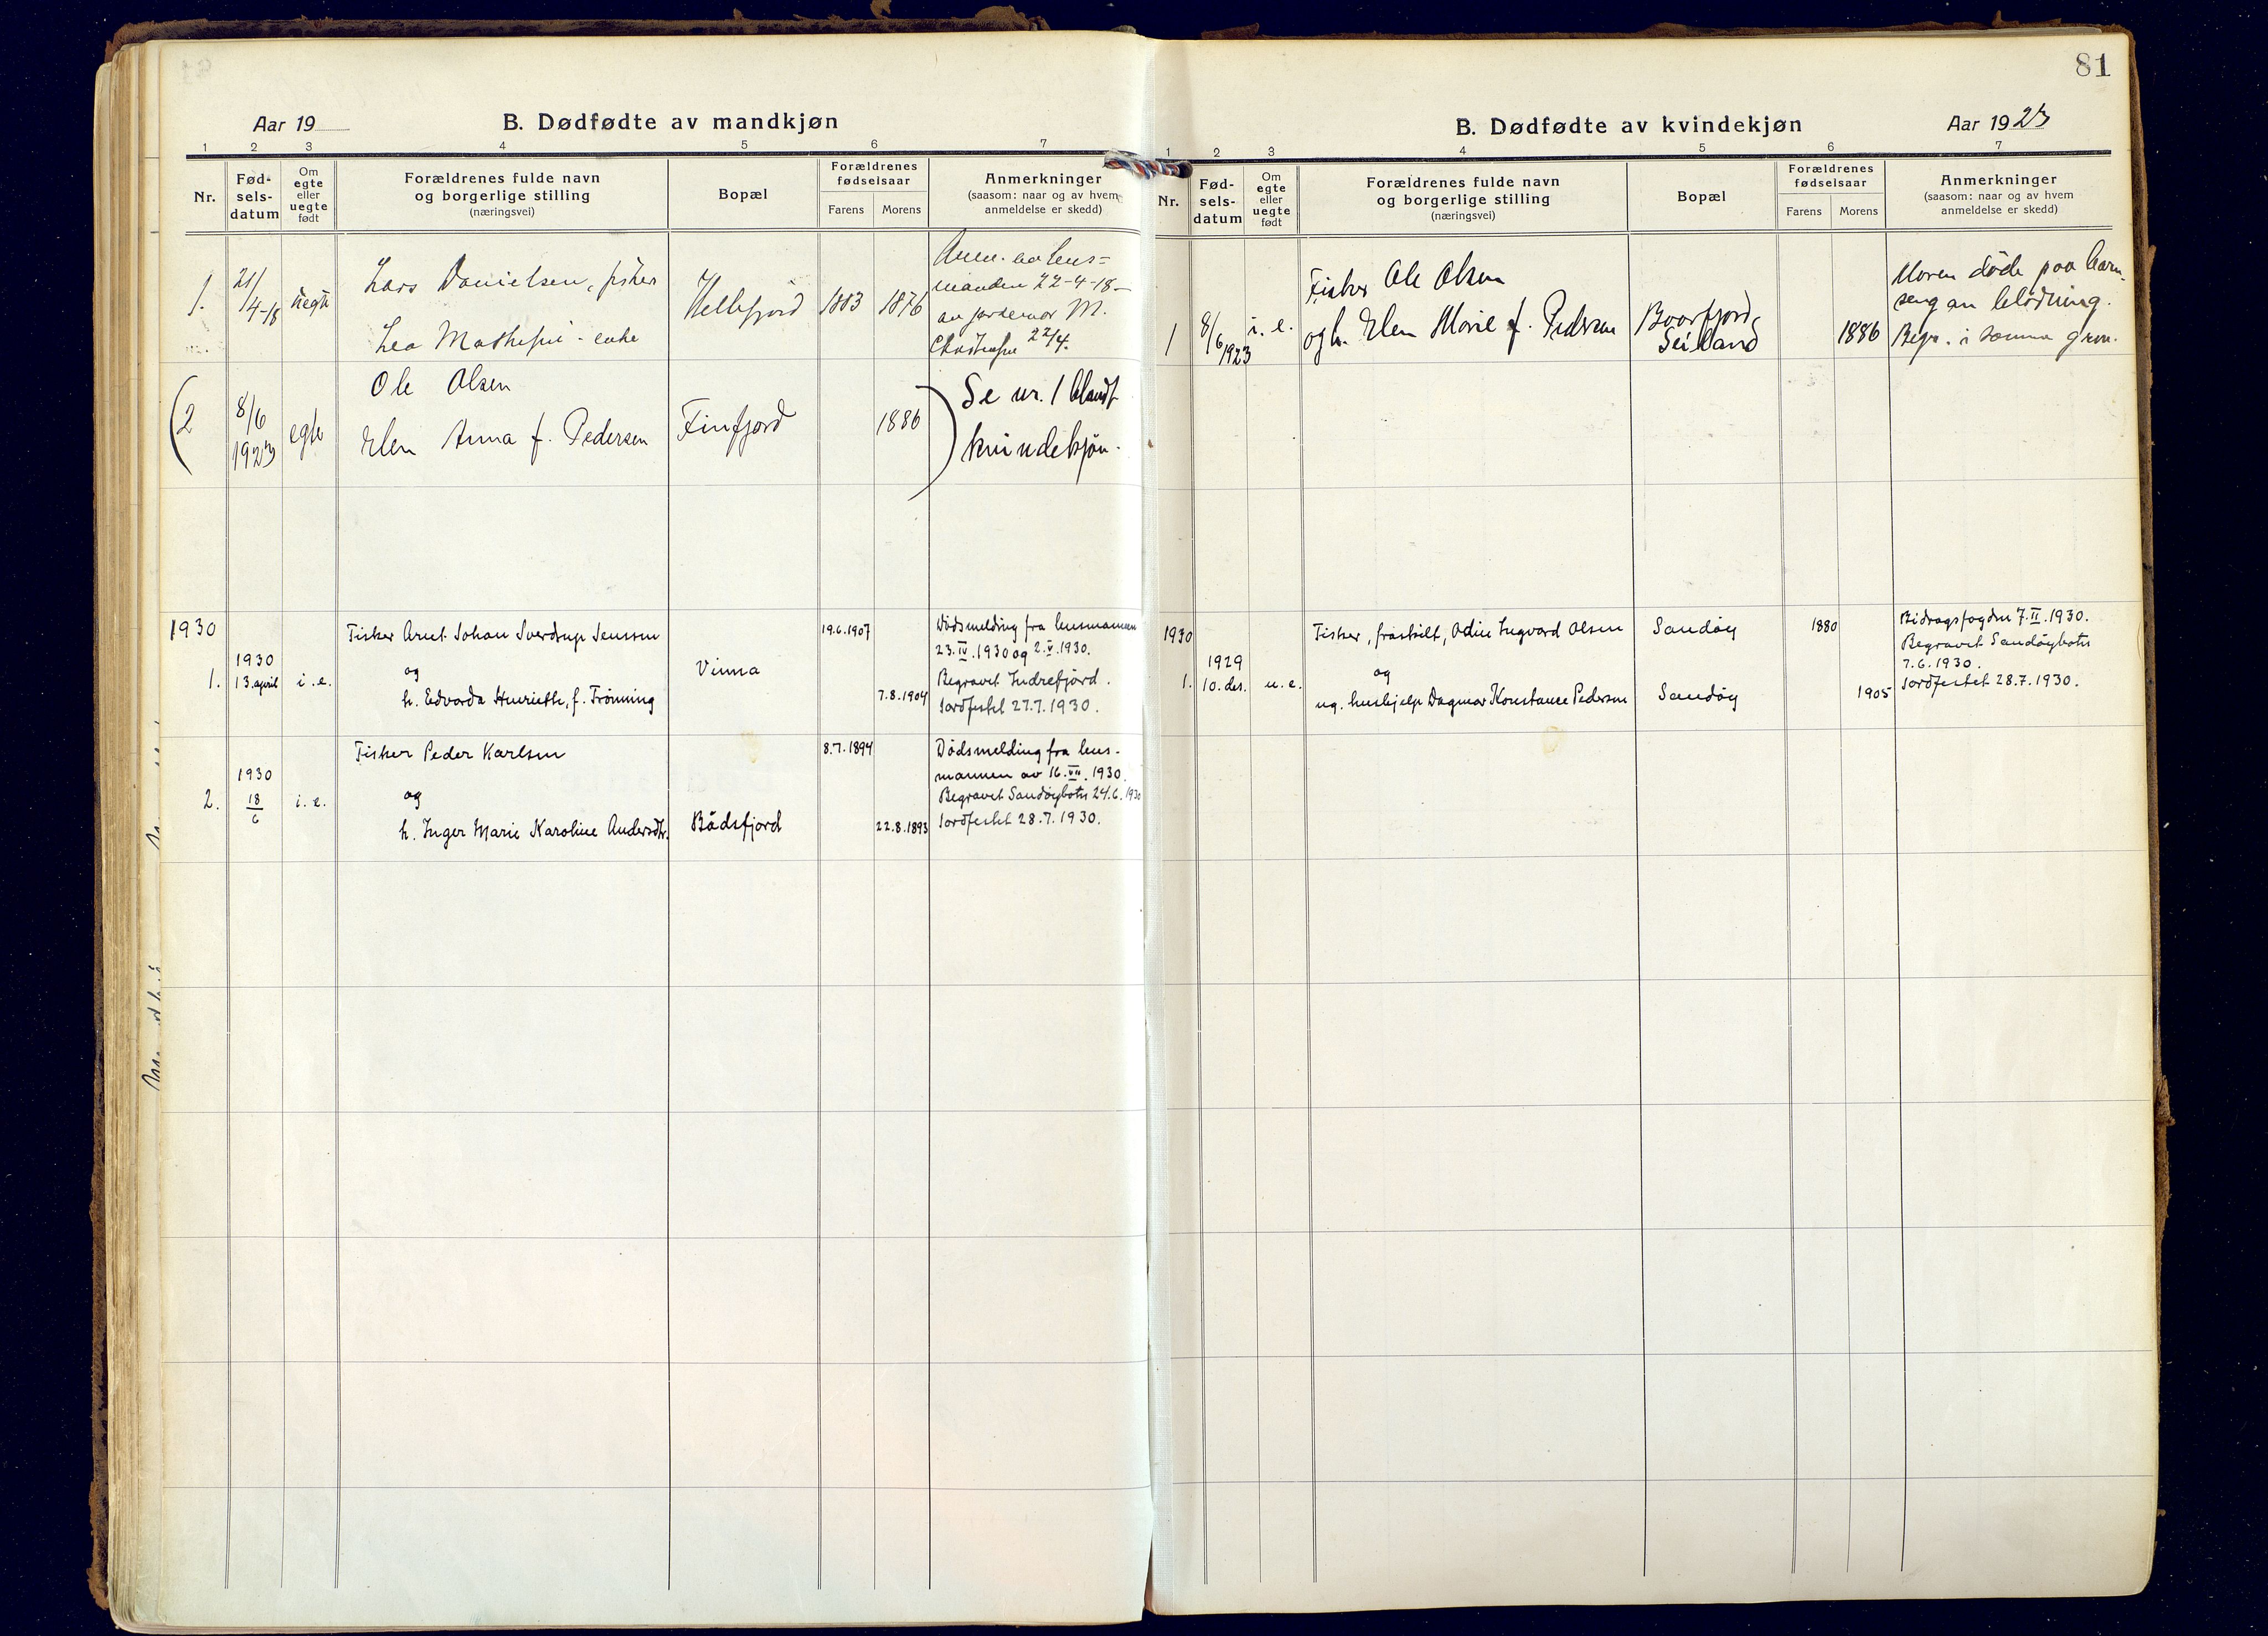 Aar 19
B. Dødfødte av mandkjøn
1 2 3 4 5 6 7
Nr.
Fød-
sels-
datum
Om
egte
eller
uegte
født
Forældrenes fulde navn
og borgerlige stilling
(næringsvei)
Bopæl
Forældrenes
fødselsaar
Farens Morens
Anmerkninger
(saasom: naar og av hvem
anmeldelse er skedd)
1.
21/
4-18
uegte
Lars Danielsen, fisker
Lea Mathesen - enke
Hellefjord
1883
1876
Anm. av lens=
manden 22-4-18 -
av jordemor M.
22/4.
(2
8/6
1923
egte
Ole Olsen
Elen Anna f. Pedersen
Finfjord
1886
Se nr. 1 blandt
kvindekjøn.
1930
1.
1930
13. april
i. e.
Fisker Arnt Johan Sverdrup Jenssen
og
h. Edvarda Henriette, f. Trønning
Vinna
19.6.1907
7.8.1904
Dødsmelding fra lensmannen
23.IV.1930 og 2.V.1930.
Begravet Indrefjord.
Jordfestet 27.7.1930.
2.
1930
18
6
i. e.
Fisker Peder Karlsen
og
h. Inger Marie Karoline Andersdtr.
Bådsfjord
8.7.1894
22.8.1893
Dødsmelding fra lens-
mannen av 16.VII.1930.
Begravet Sandøybotn 24.6.1930
Jordfestet 28.7.1930.
81
B. Dødfødte av kvindekjøn
Aar 1923
1 2 3 4 5 6 7
Nr.
Fød-
sels-
datum
Om
egte
eller
uegte
født
Forældrenes fulde navn
og borgerlige stilling
(næringsvei)
Bopæl
Forældrenes
fødselsaar
Farens Morens
Anmerkninger
(saasom: naar og av hvem
anmeldelse er skedd)
1
8/6
1923
i. e.
Fisker Ole Olsen
og h. Elen Marie f. Pedersen
Baarfjord,
Seiland
1886
Moren døde paa barn-
seng av blødning.
Begr. i samme grav.
1930
1.
1929
10. des.
u. e.
Fisker, fraskilt, Odin Ingvard Olsen
og
ug. hushjelp Dagmar Konstanse Pedersen
Sandøy
Sandøy
1880
1905
Bidragsfogden 7.II.1930.
Begravet Sandøybotn
7.6.1930.
Jordfestet 28.7.1930.